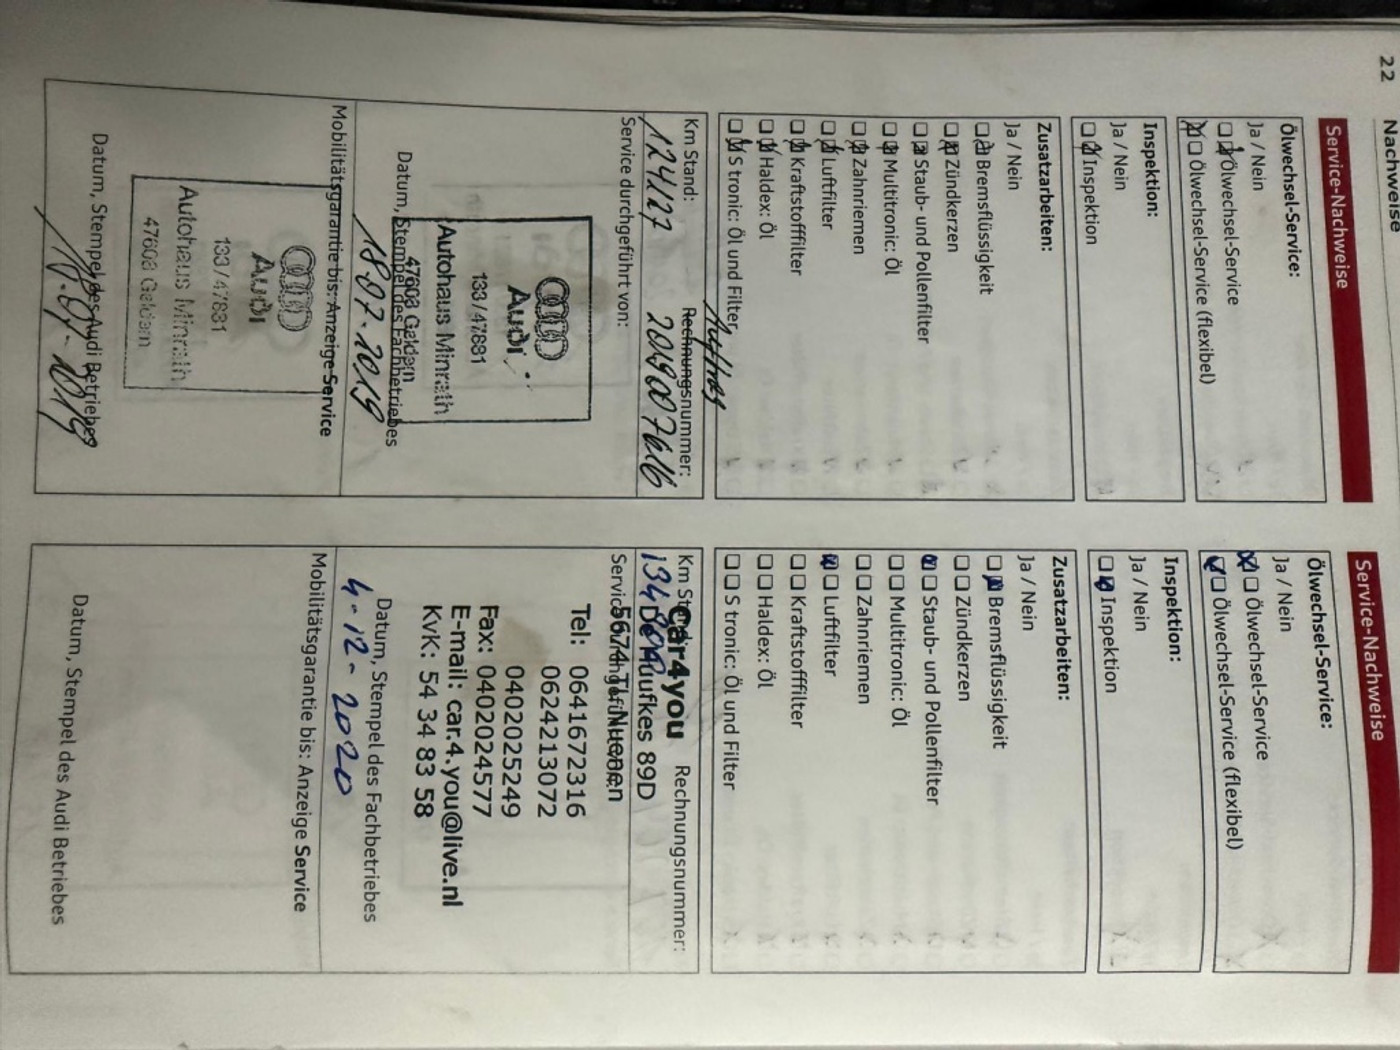 22
Nachweise
Service-Nachweise
Ölwechsel-Service:
Ja / Nein
Ölwechsel-Service
Ölwechsel-Service (flexibel)
Inspektion:
Ja / Nein
Inspektion
Zusatzarbeiten:
Ja / Nein
Bremsflüssigkeit
Zündkerzen
Staub- und Pollenfilter
Multitronic: Öl
Zahnriemen
Luftfilter
Kraftstofffilter
Haldex: Öl
S tronic: Öl und Filter
Auftrag
Km Stand: Rechnungsnummer:
124127 2019007616
Service durchgeführt von:
Audi
133 / 47831
Autohaus Minrath
47608 Geldern
Datum, Stempel des Fachbetriebes
18.07.2019
Mobilitätsgarantie bis: Anzeige Service
Audi
133 / 47831
Autohaus Minrath
47608 Geldern
Datum, Stempel des Audi Betriebes
18.07.2019
Service-Nachweise
Ölwechsel-Service:
Ja / Nein
Ölwechsel-Service
Ölwechsel-Service (flexibel)
Inspektion:
Ja / Nein
Inspektion
Zusatzarbeiten:
Ja / Nein
Bremsflüssigkeit
Zündkerzen
Staub- und Pollenfilter
Multitronic: Öl
Zahnriemen
Luftfilter
Kraftstofffilter
Haldex: Öl
S tronic: Öl und Filter
Km Rechnungsnummer:
Car4you
89D
5674 Nuenen
Tel: 0641672316
0624213072
0402025249
Fax: 0402024577
E-mail: car.4.you@live.nl
KvK: 54 34 83 58
Datum, Stempel des Fachbetriebes
4-12-2020
Mobilitätsgarantie bis: Anzeige Service
Datum, Stempel des Audi Betriebes